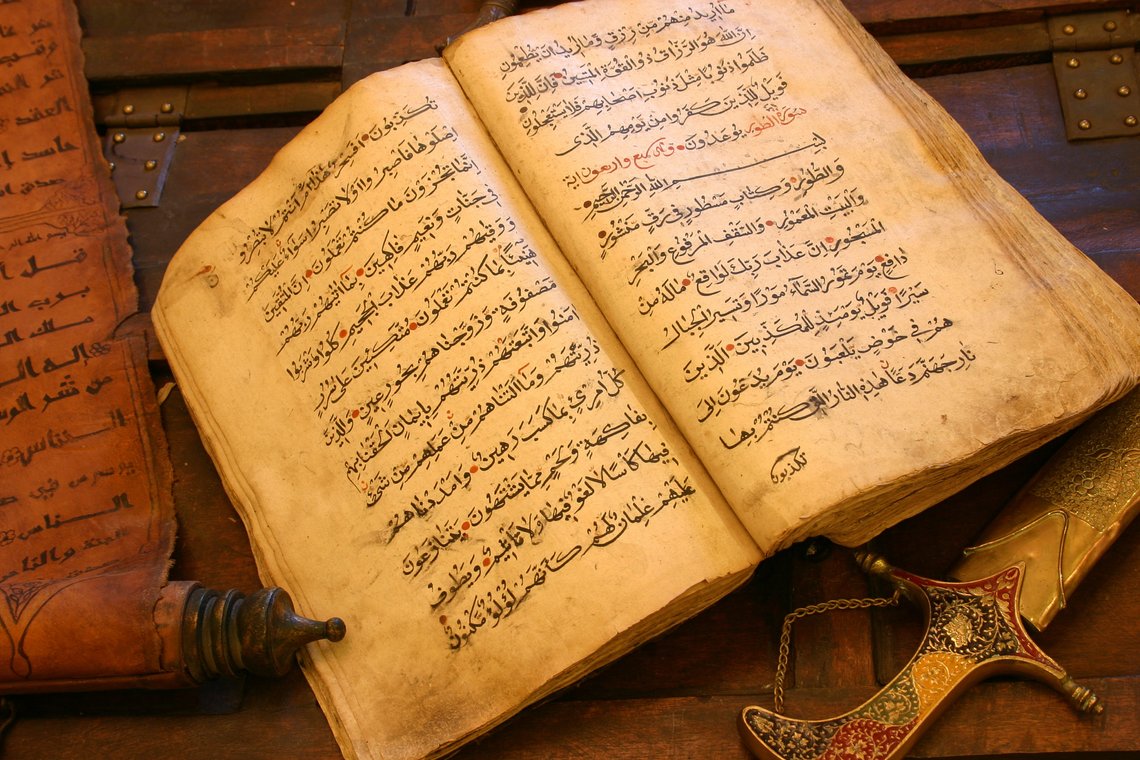 ما اريد منهم من رزق وما اريد ان يطعمون
ان الله هو الرزاق ذو القوة المتين فان للذين
ظلموا ذنوبا مثل ذنوب اصحابهم فلا يستعجلون
فويل للذين كفروا من يومهم الذي
سورة الطور يوعدون سبع واربعون اية
بسم الله الرحمن الرحيم
والطور وكتاب مسطور في رق منشور
والبيت المعمور والسقف المرفوع والبحر
المسجور ان عذاب ربك لواقع ماله من
دافع يوم تمور السماء مورا وتسير الجبال
سيرا فويل يومئذ للمكذبين الذين
هم في خوض يلعبون يوم يدعون الى
نار جهنم دعا هذه النار التي كنتم بها
تكذبون
تكذبون افسحر هذا ام انتم لا تبصرو
اصلوها فاصبروا اولا تصبروا سواء عليكم
انما تجزون ما كنتم تعملون ان المتقين
في جنات ونعيم فاكهين بما اتيهم ربهم
ووقيهم ربهم عذاب الجحيم كلوا واشربوا
هنيئا بما كنتم تعملون متكئين على سرر
مصفوفة وزوجناهم بحور عين والذين
امنوا واتبعتهم ذريتهم بايمان الحقنا بهم
ذريتهم وما التناهم من عملهم من شئ
كل امرئ بما كسب رهين وامددناهم
بفاكهة ولحم مما يشتهون يتنازعون
فيها كاسا لا لغو فيها ولا تاثيم ويطوف
عليهم غلمان لهم كانهم لؤلؤ مكنون
العقد
حاسد
قل
برب
ملك
اله
من شر
الناس
في
الناس